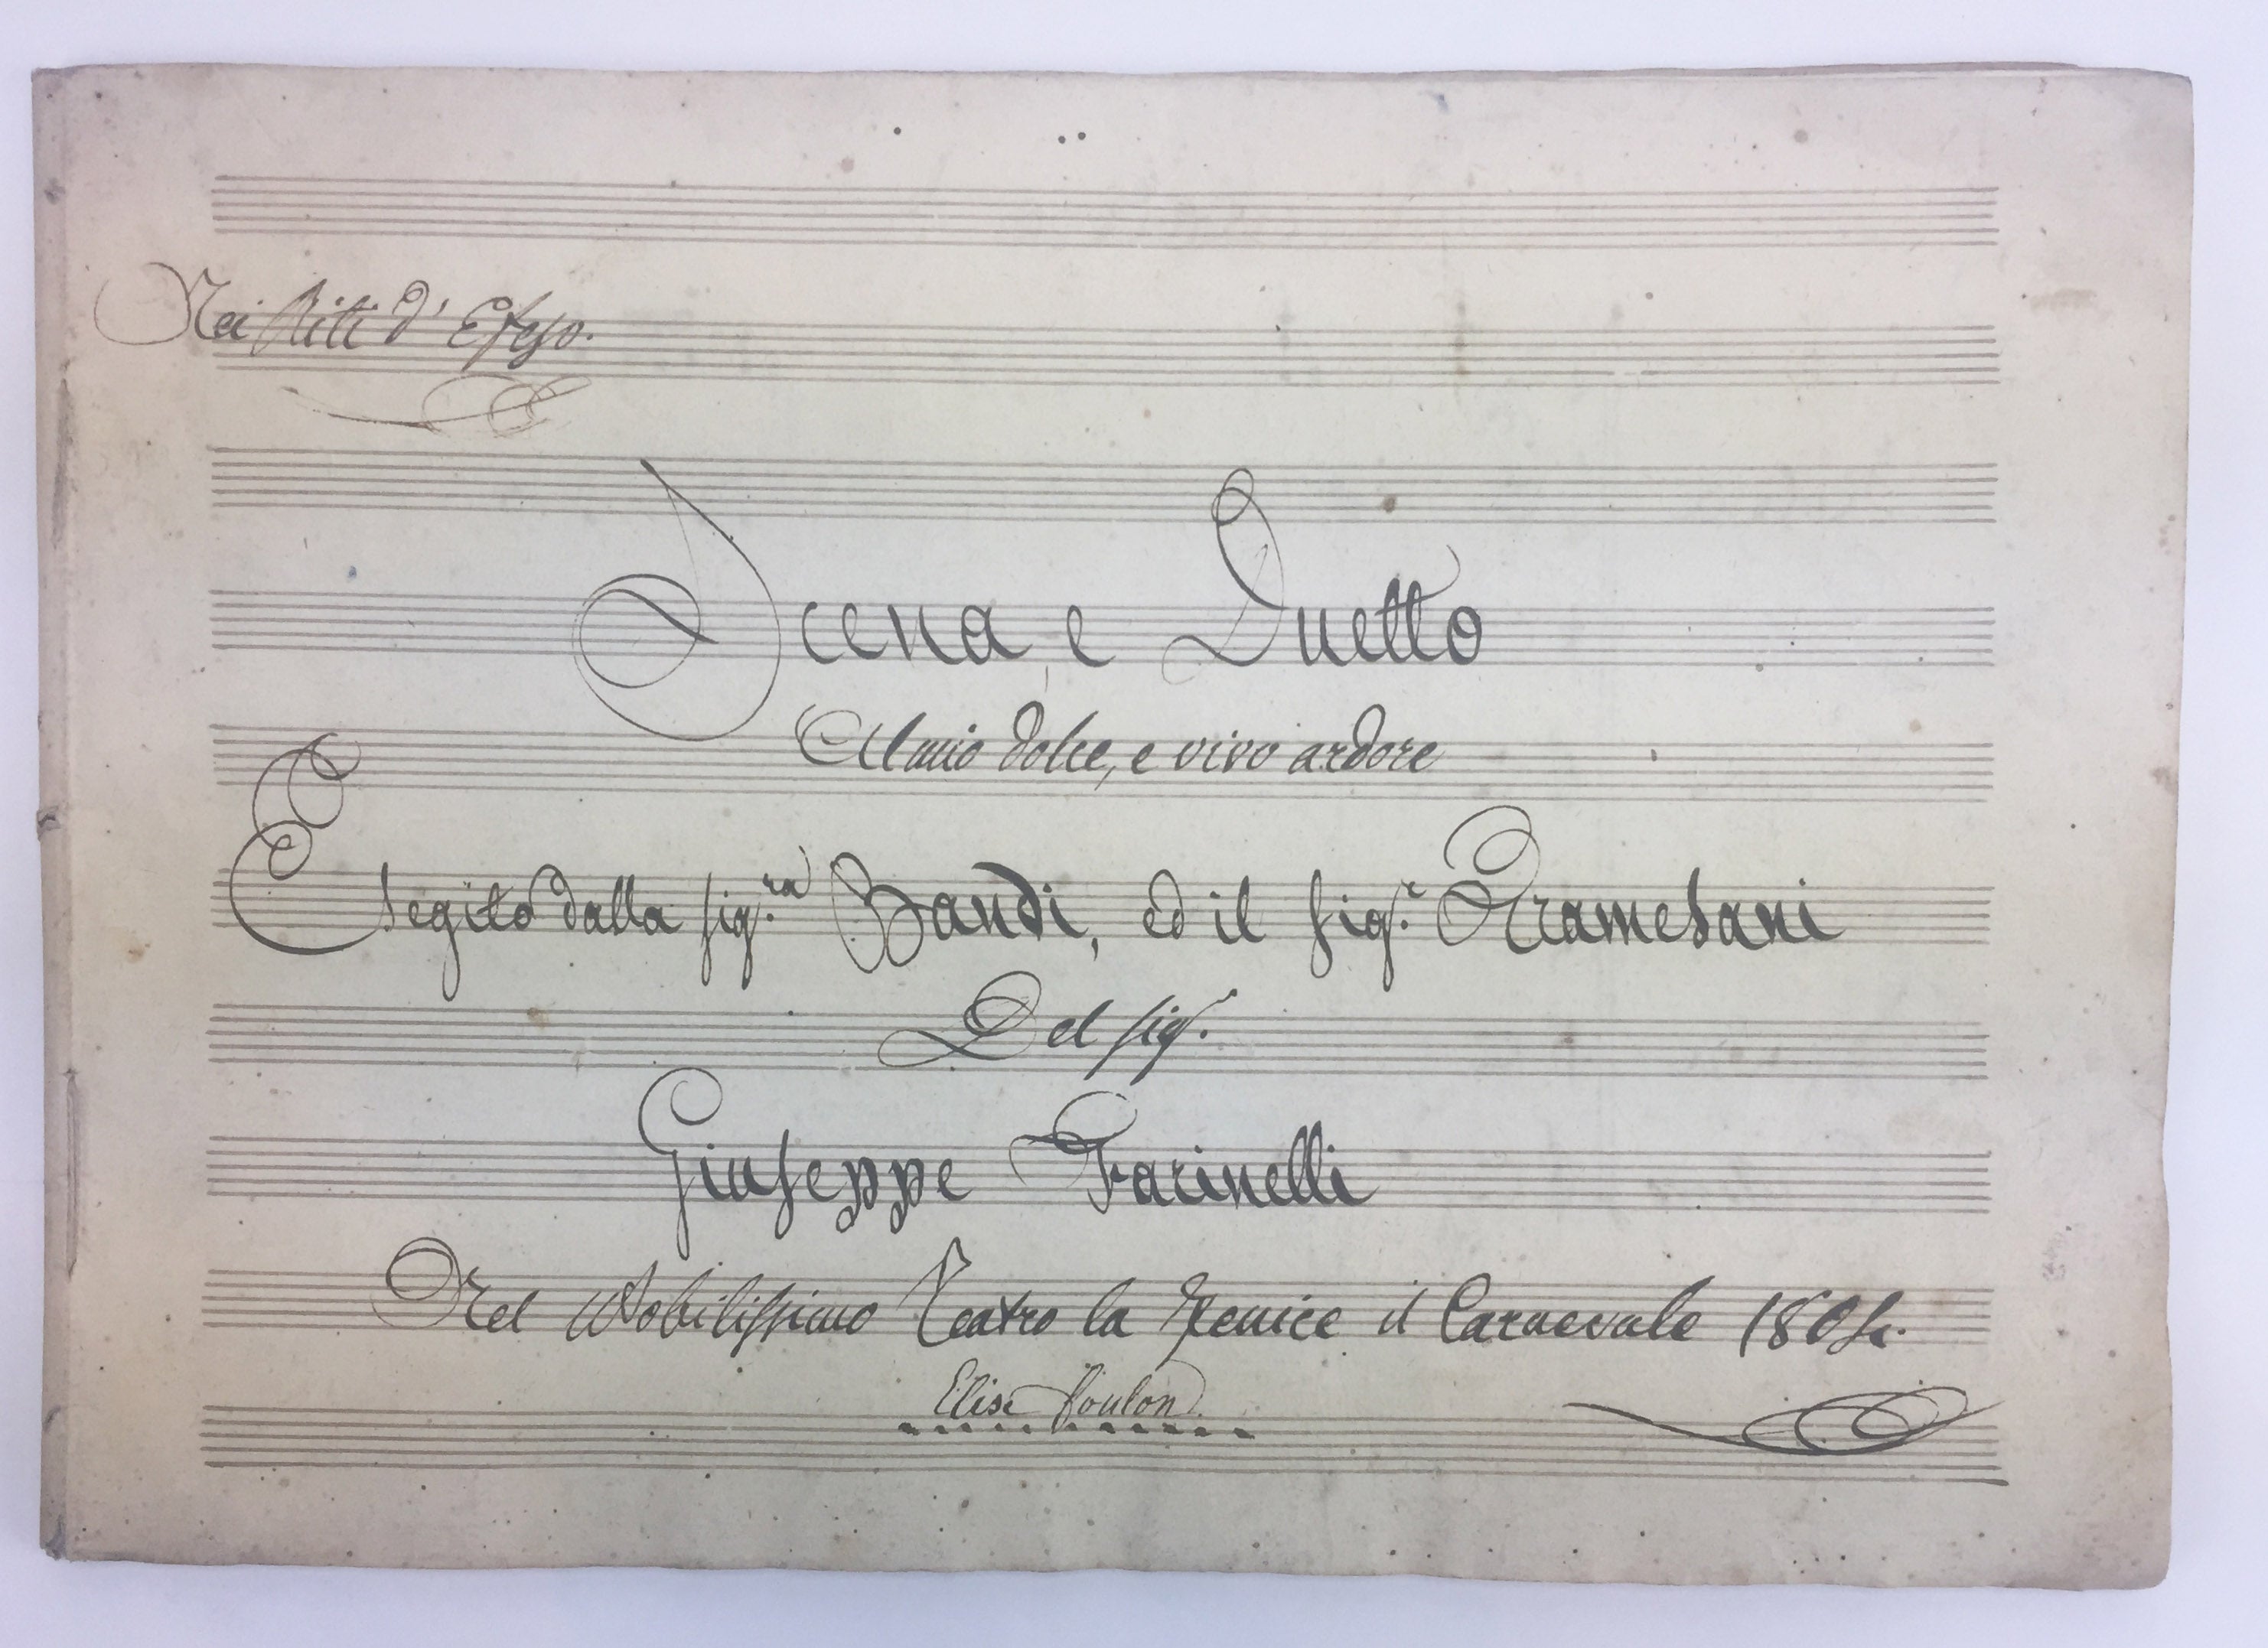 Nei Riti d' Efeso.
Scena, e Duetto
Al mio dolce, e vivo ardore
Esegito dalla sig.ra Bandi, ed il sig.r Tramesani
Del sig.r
Giuseppe Farinelli
Nel Nobilissimo Teatro la Fenice il Carnevale 1804.
Elise foulon